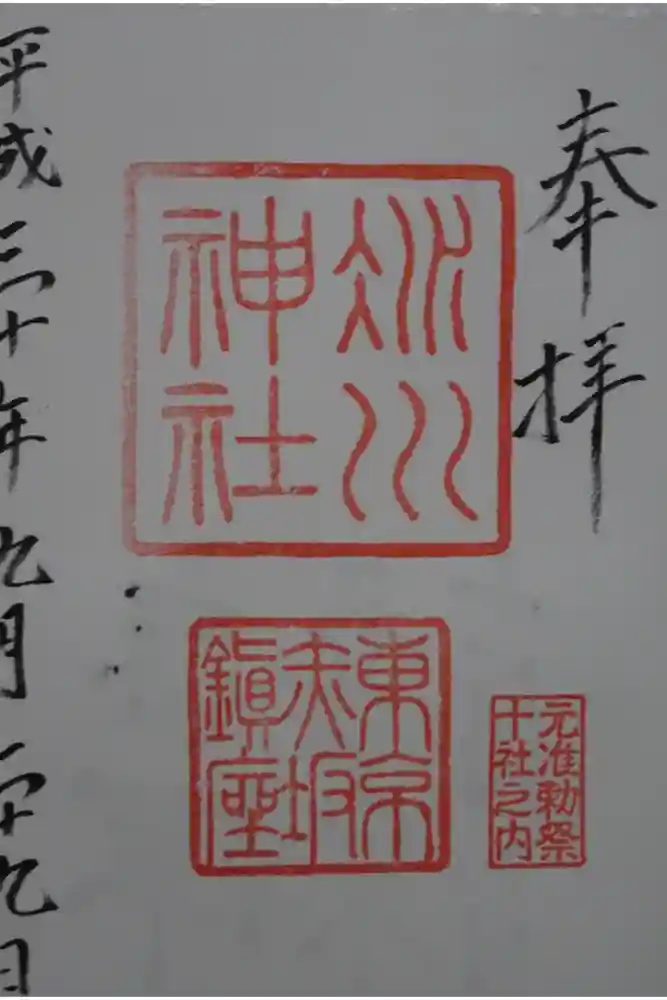 奉拝
冰川
神社
東京
赤坂
鎭座
元准勅祭
十社之内
平成三十年九月二十九日